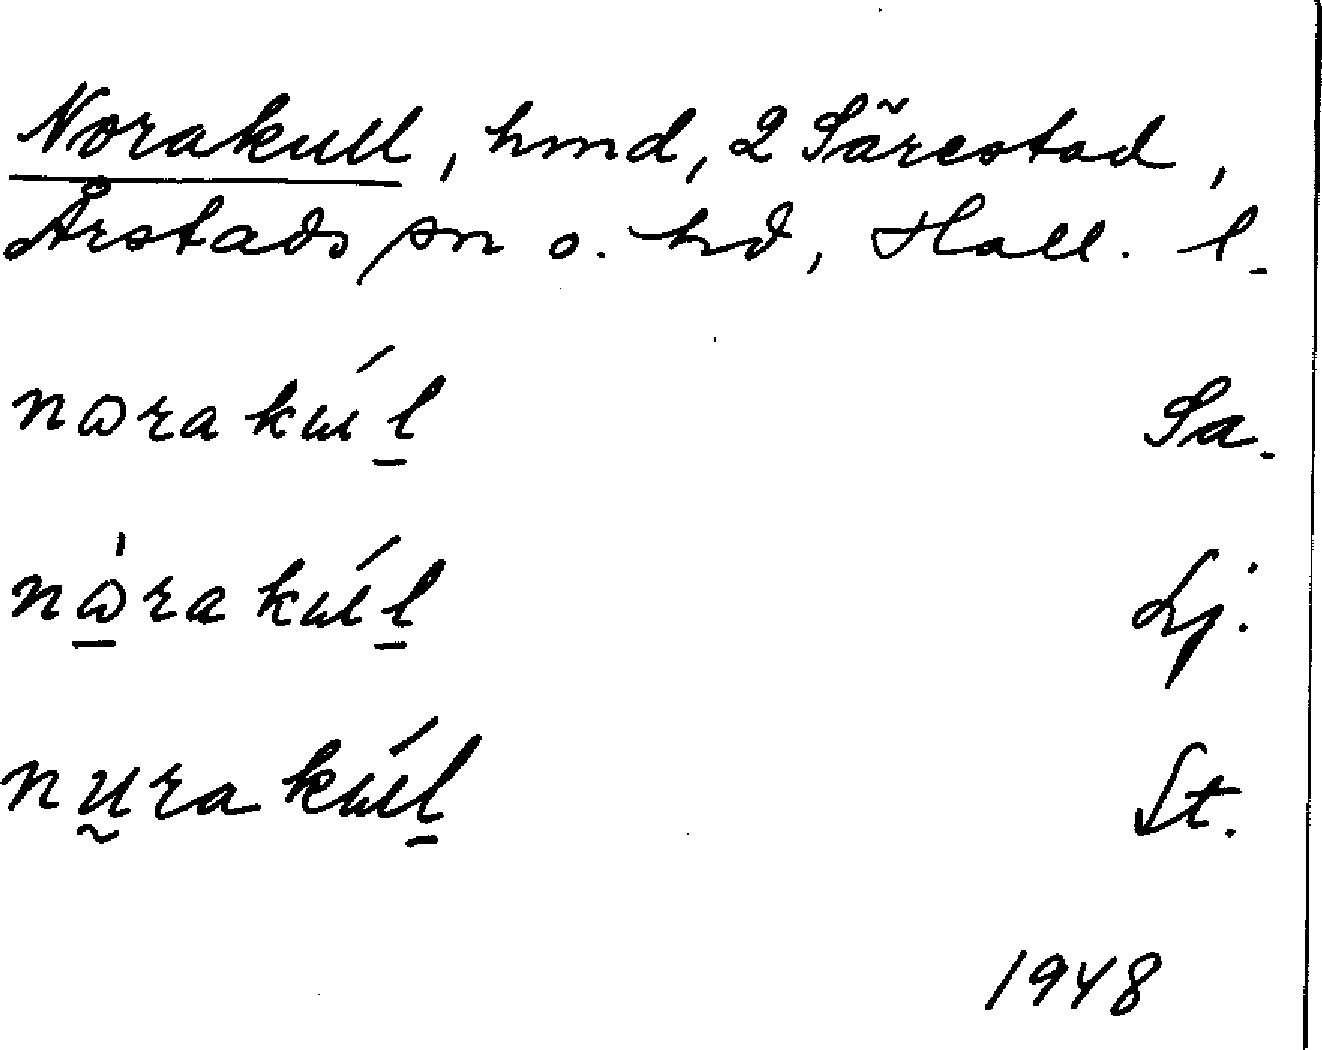 Norakull, hmd, 2 Särestad,
Årstads sn o. hd, Hall. l.
nɷrakɯ́l̲ Sa.
nɷ̲̍rakɯ́l̲ Lj.
nṵrakɯ́l̲ St.
1948